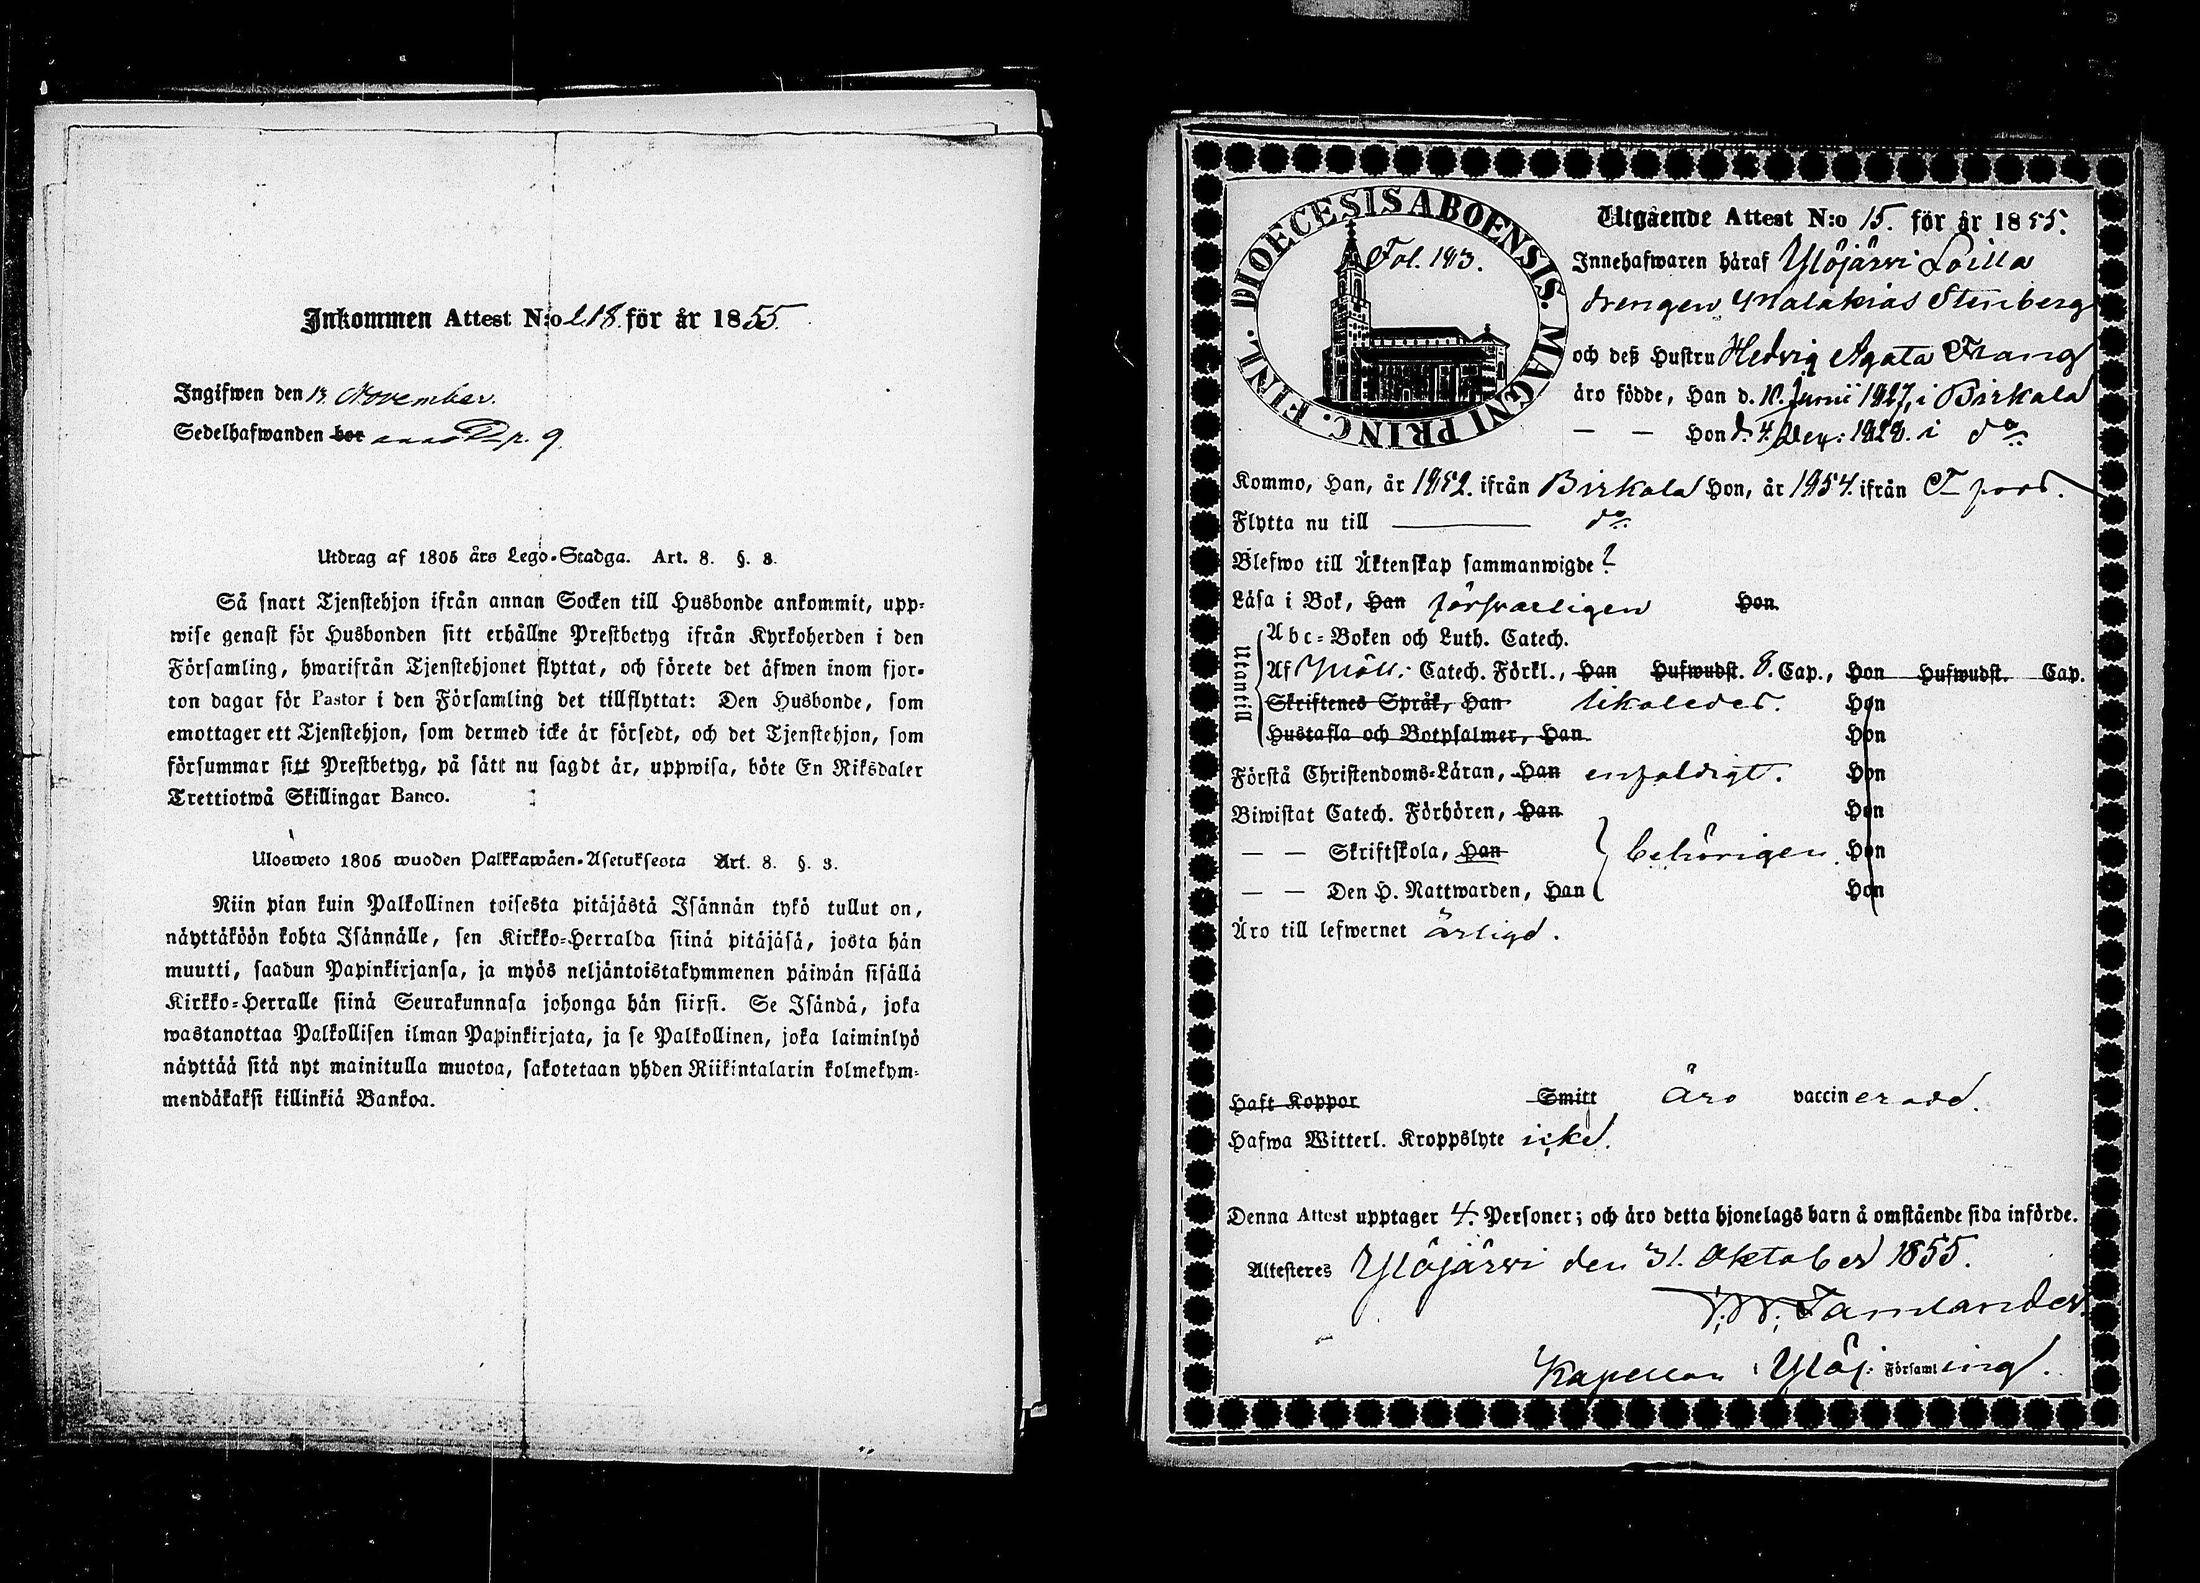 Inkommen Attest N:o 218. för år 1855.
Ingifwen den 13 November.
Sedelhafwanden bor p. 9.
Utdrag af 1805 års Lego-Stadga. Art. 8. §. 3.
Så snart Tjenstehjon ifrån annan Socken till Husbonde ankommit, upp-
wise genast för Husbonden sitt erhållne Prestbetyg ifrån Kyrkoherden i den
Församling, hwarifrån Tjenstehjonet flyttat, och förete det äfwen inom fjor-
ton dagar för Pastor i den Församling det tillflyttat: Den Husbonde, som
emottager ett Tjenstehjon, som dermed icke är försedt, och det Tjenstehjon, som
försummar sitt Prestbetyg, på sätt nu sagdt är, uppwisa, böte En Riksdaler
Trettiotwå Skillingar Banco.
Ulosweto 1805 wuoden Palkkawäen-Asetuksesta Art. 8. §. 3.
Niin pian kuin Palkollinen toisesta pitäjästä Isännän tykö tullut on,
näyttäköön kohta Isännälle, sen Kirkko-Herralda siinä pitäjäsä, josta hän
muutti, saadun Papinkirjansa, ja myös neljäntoistakymmenen päiwän sisällä
Kirkko-Herralle siinä Seurakunnasa johonga hän siirsi. Se Isändä, joka
wastanottaa Palkollisen ilman Papinkirjata, ja se Palkollinen, joka laiminlyö
näyttää sitä nyt mainitulla muotoa, sakotetaan yhden Riikintalarin kolmekym-
mendäkaksi killinkiä Bankoa.
DIOECESIS ABOENSIS. MAGNI PRINC. FINL.
Fol. 183.
Utgående Attest N:o 15. för år 1855.
Innehafwaren häraf Ylöjärwi Loilla
drengen Malakias Stenberg
och deß Hustru Hedvig Agata Frang
äro födde, Han d. 10. Junii 1827, i Birkala
— — Hon d. 4. 1828. i do
Kommo, Han, år 1852. ifrån Birkala Hon, år 1854. ifrån T fors.
Flytta nu till ——— do
Blefwo till Äktenskap sammanwigde ?
Läsa i Bok, Han försvarligen Hon
Utantill
Abc-Boken och Luth. Catech.
Af Möll: Catech. Förkl., Han Hufwudst. 8. Cap., Hon Hufwudst. Cap.
Skriftenes Språk, Han likaledes. Hon
Hustafla och Botpsalmer, Han Hon
Förstå Christendoms-Läran, Han enfaldigt. Hon
Biwistat Catech. Förhören, Han Hon
— — Skriftskola, Han behörigen Hon
— — Den H. Nattwarden, Han Hon
Äro till lefwernet ärliga.
Haft Koppor Smitt äro vaccinerade.
Hafwa Witterl. Kroppslyte icke.
Denna Attest upptager 4. Personer; och äro detta hjonelags barn å omstående sida införde.
Attesteres Ylöjärwi den 31. Oktober 1855.
Kapellan i Ylöj: Församling.